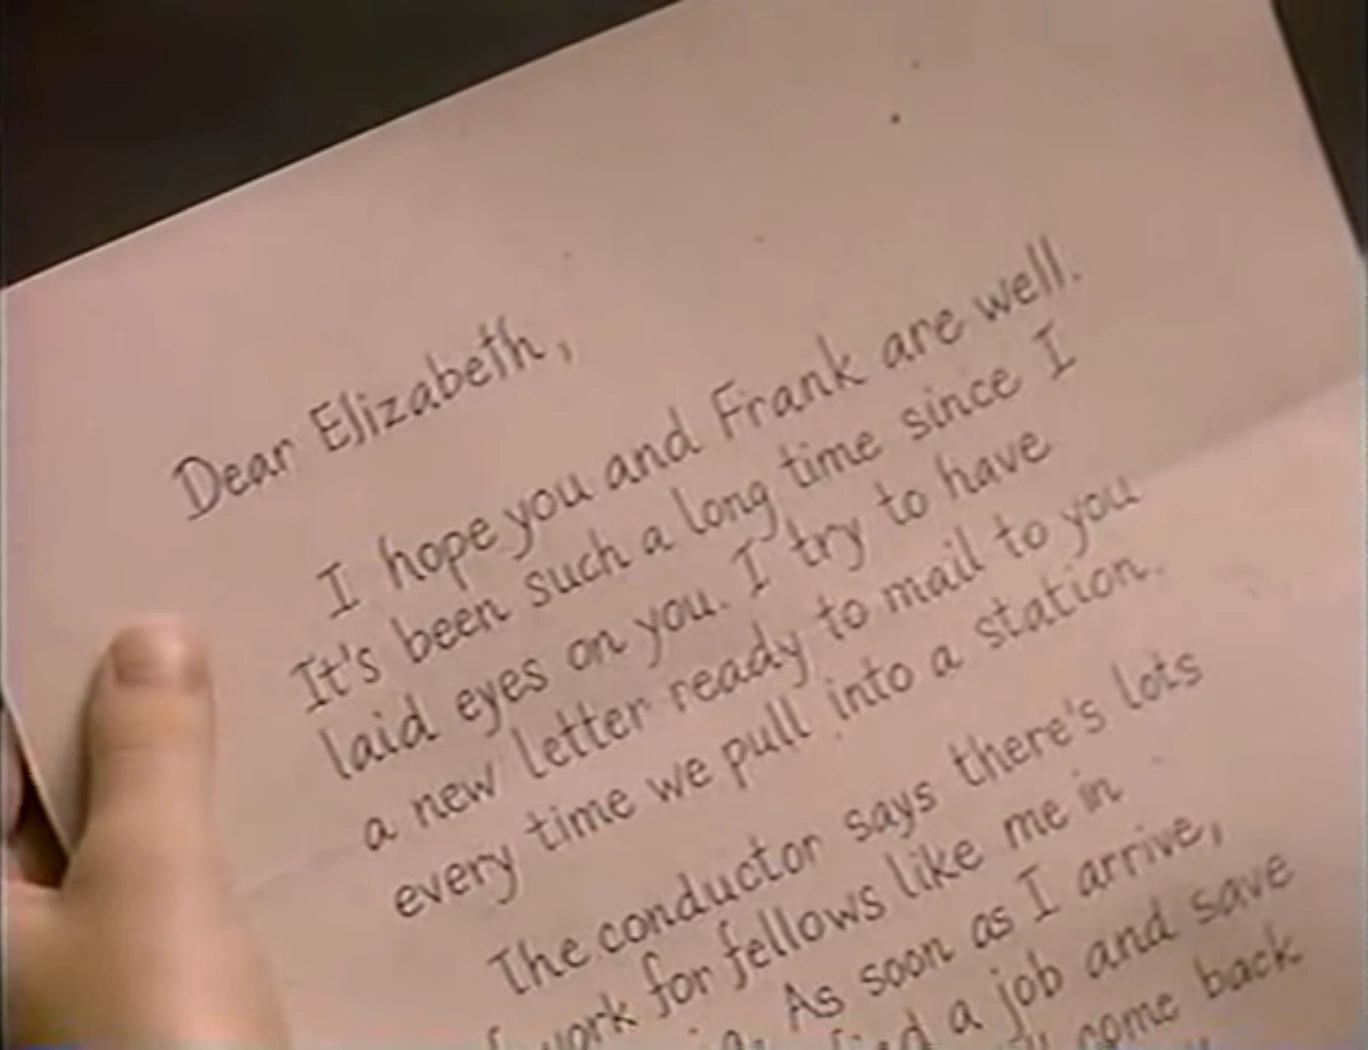 Dear Elizabeth,
I hope you and Frank are well.
It's been such a long time since I
laid eyes on you. I try to have
a new letter ready to mail to you
every time we pull into a station.
The conductor says there's lots
work for fellows like me in
As soon as I arrive,
a job and save
come back